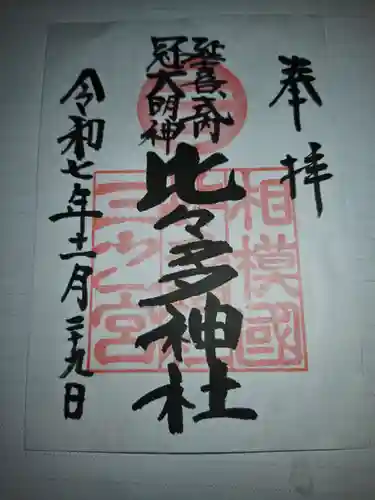 奉拝
延喜斎
冠大明神
比々多神社
令和七年十一月二十九日
相模國
三之宮